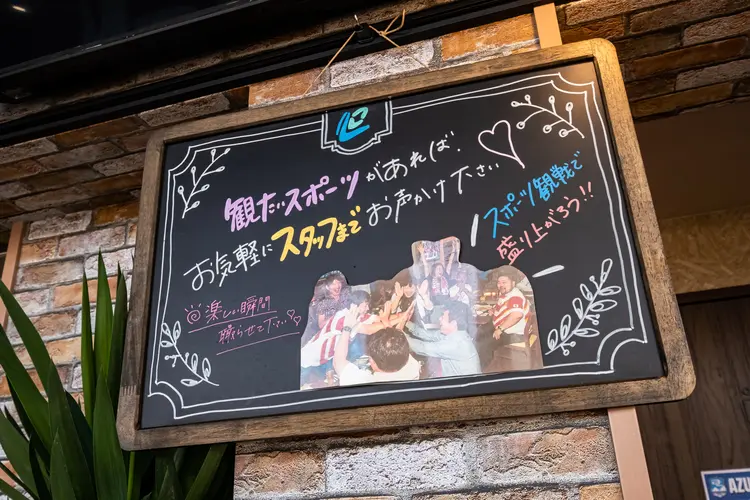 観たいスポーツがあれば、
お気軽にスタッフまでお声かけ下さい
スポーツ観戦で
盛り上がろう!!
楽しい瞬間
撮らせて下さい
AZU